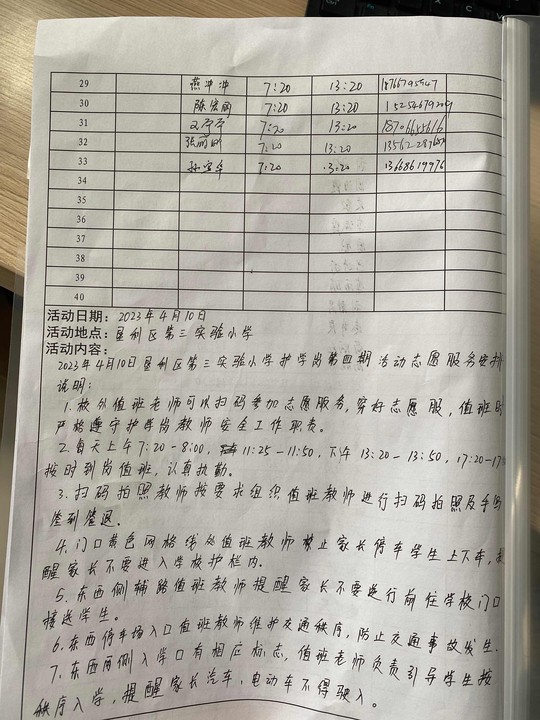 29 燕冲冲 7:20 13:20 18766795947
30 陈宏丽 7:20 13:20
31 7:20 13:20 18706665616
32 张丽 7:20 13:20
33 7:20 13:20 13668619976
34
35
36
37
38
39
40
活动日期: 2023年4月10日
活动地点: 垦利区第三实验小学
活动内容:
2023年4月10日垦利区第三实验小学护学岗第四期活动志愿服务安排
说明:
1.校外值班老师可以扫码参加志愿服务,穿好志愿服,值班时
严格遵守护学岗教师安全工作职责。
2.每天上午7:20-8:00, 11:25-11:50,下午13:20-13:50,17:20-17
按时到岗值班,认真执勤。
3.扫码拍照教师按要求组织值班教师进行扫码拍照及手写
签到签退。
4.门口黄色网格线处值班教师禁止家长停车学生上下车,提
醒家长不要进入学校护栏内。
5.东西侧辅路值班教师提醒家长不要逆行前往学校门口
接送学生。
6.东西停车场入口值班教师维护交通秩序,防止交通事故发生.
7.东西两侧入学口有相应标志,值班老师负责引导学生按
秩序入学,提醒家长汽车、电动车不得驶入。